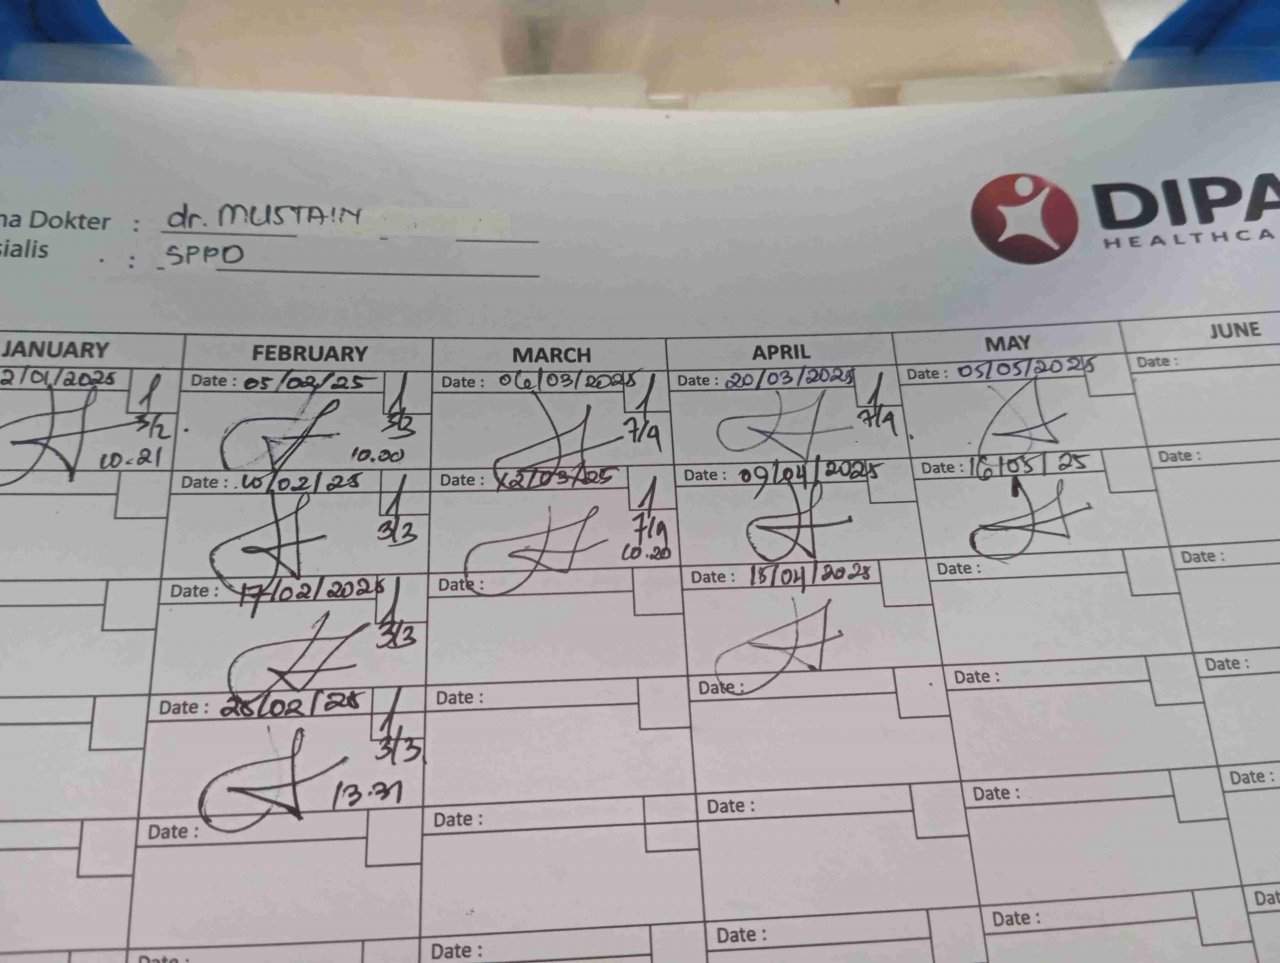 na Dokter : dr. MUSTAIN
sialis : SPPD
DIPA
HEALTHCA
JANUARY FEBRUARY MARCH APRIL MAY JUNE
2/01/2025 1 Date : 05/02/25 1 Date : 06/03/2025 1 Date : 20/03/2025 1 Date : 05/05/2025 Date :
3/2 3/3 7/4 7/4
10.21 10.00
Date : 10/02/25 1 Date : 12/03/25 1 Date : 09/04/2025 Date : 16/05/25 Date :
3/3 7/4
10.20
Date : 17/02/2025 1 Date : Date : 15/04/2025 Date : Date :
3/3
Date : 25/02/25 1 Date : Date : Date : Date :
3/3
13.31
Date : Date : Date : Date : Date :
Date : Date : Date : Date : Dat